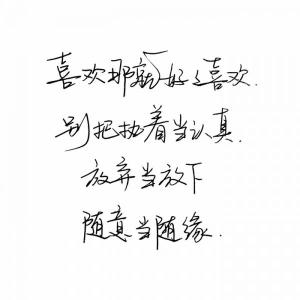 喜欢那就好好喜欢.
别把执着当认真.
放弃当放下
随意当随缘.